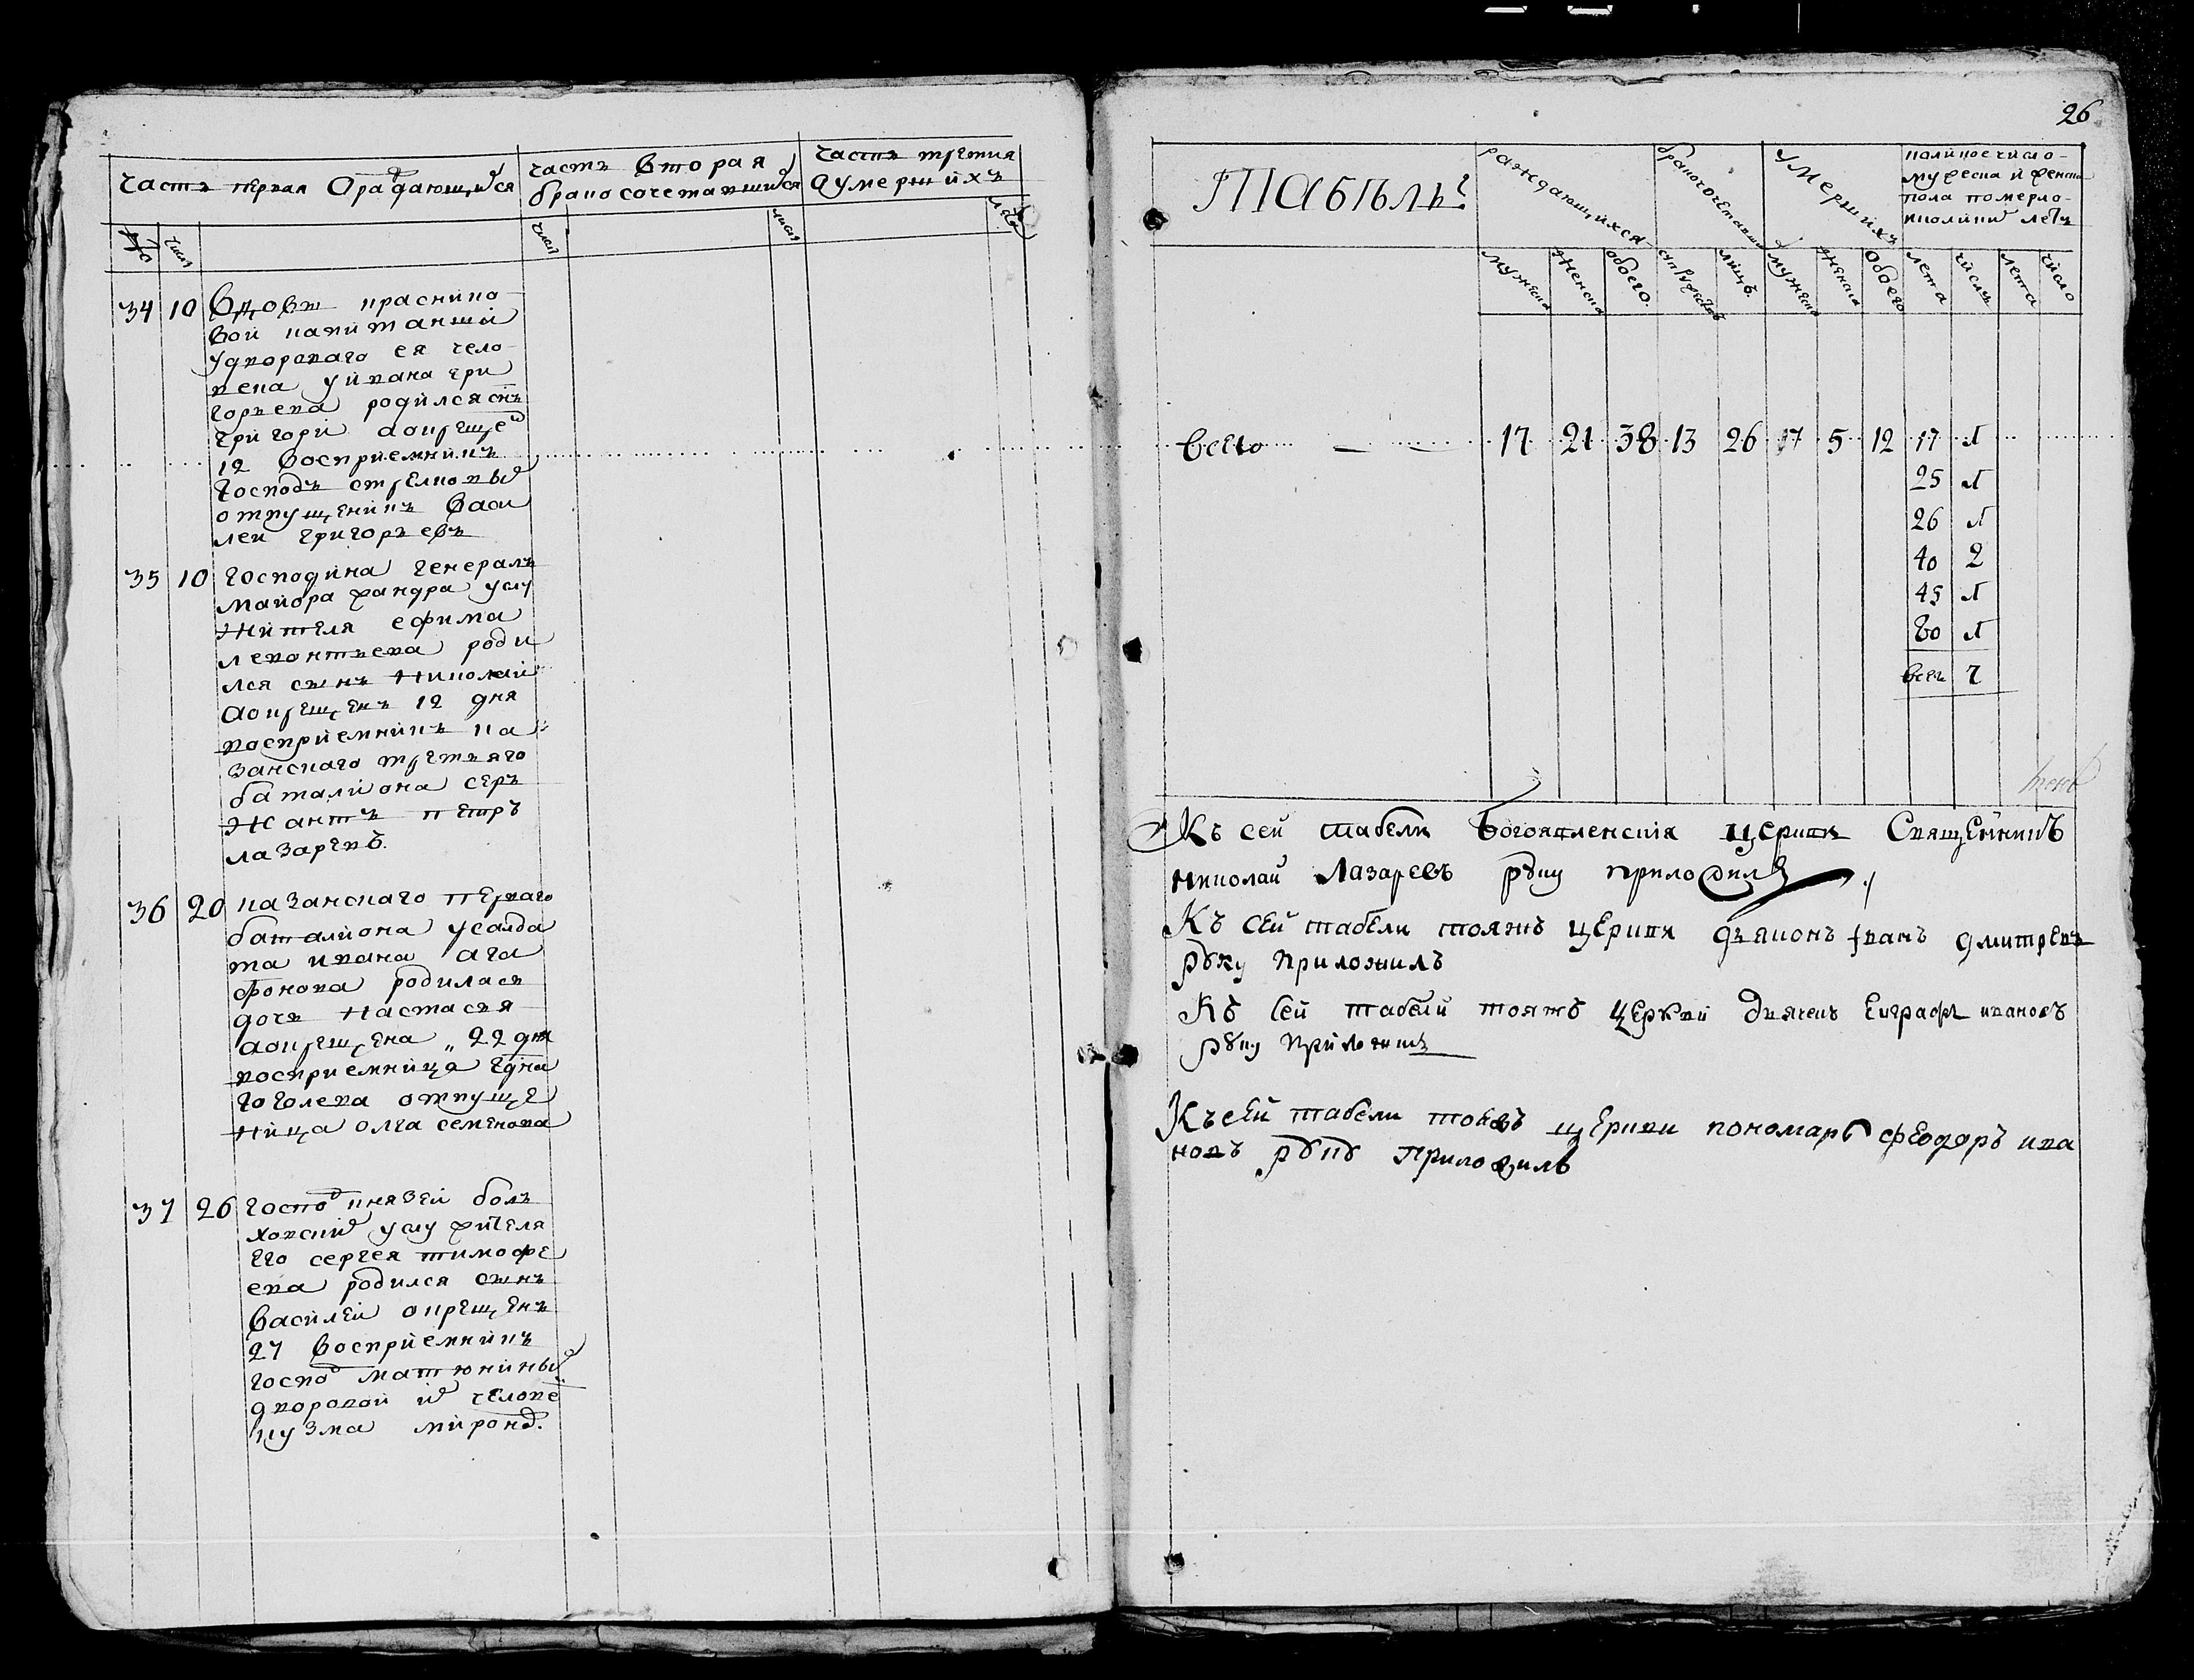 Часть первая Ораждающихся
часть вторая
бракосочетавшихся
часть третия
Оумершихъ
№
число
число
число
лета
34 10 Вдовы краснико
вой капитанши
у дворового ея чело
века у ивана гри
горьева родился снъ
григорй а окрещен
12 восприемникъ
господъ стрелковых
отпущеникъ Васи
лей григорьевъ
35 10 господина генералъ
маиора хандра у слу
жителя ефима
левонтьева роди
лся сынъ Николай
а окрещенъ 12 дня
восприемникъ ка
занскаго третьяго
баталиона сер
жантъ петръ
лазаревъ
36 20 казанскаго перваго
баталиона у салда
та ивана ага
фонова родилась
дочь Настасья
а окрещена 22 дня
восприемница г̃дна
гоголева отпуще
ница олга семенова
37 26 господ князей болъ
ховских у служителя
его сергея тимофе
ева родился сынъ
Василей окрещенъ
27 восприемникъ
господ матюниных
дворовой их челове
кузма миронов
26
Табель
раждающихся
бракочетавших
умерших
коликое число
мужеска и женска
пола померло
и коликих летъ
мужеска
женска
обоего
супружествъ
лицъ
мужеска
женска
обоего
лета
число
лета
число
всего 17 21 38 13 26 7 5 12 17 1
25 1
26 1
40 2
45 1
80 1
всехъ 7
Къ сей табели Богоявленския церкви Священникъ
николай Лазаревъ руку приложилъ
Къ сей табели тояжъ церкви дьяконъ Иванъ дмитревъ
руку приложилъ
Къ сей табели тояжъ церкви дьячекъ Евграфъ ивановъ
руку приложилъ
Къ сей табели тояжъ церкви пономарь феодоръ ива
новъ руку приложилъ